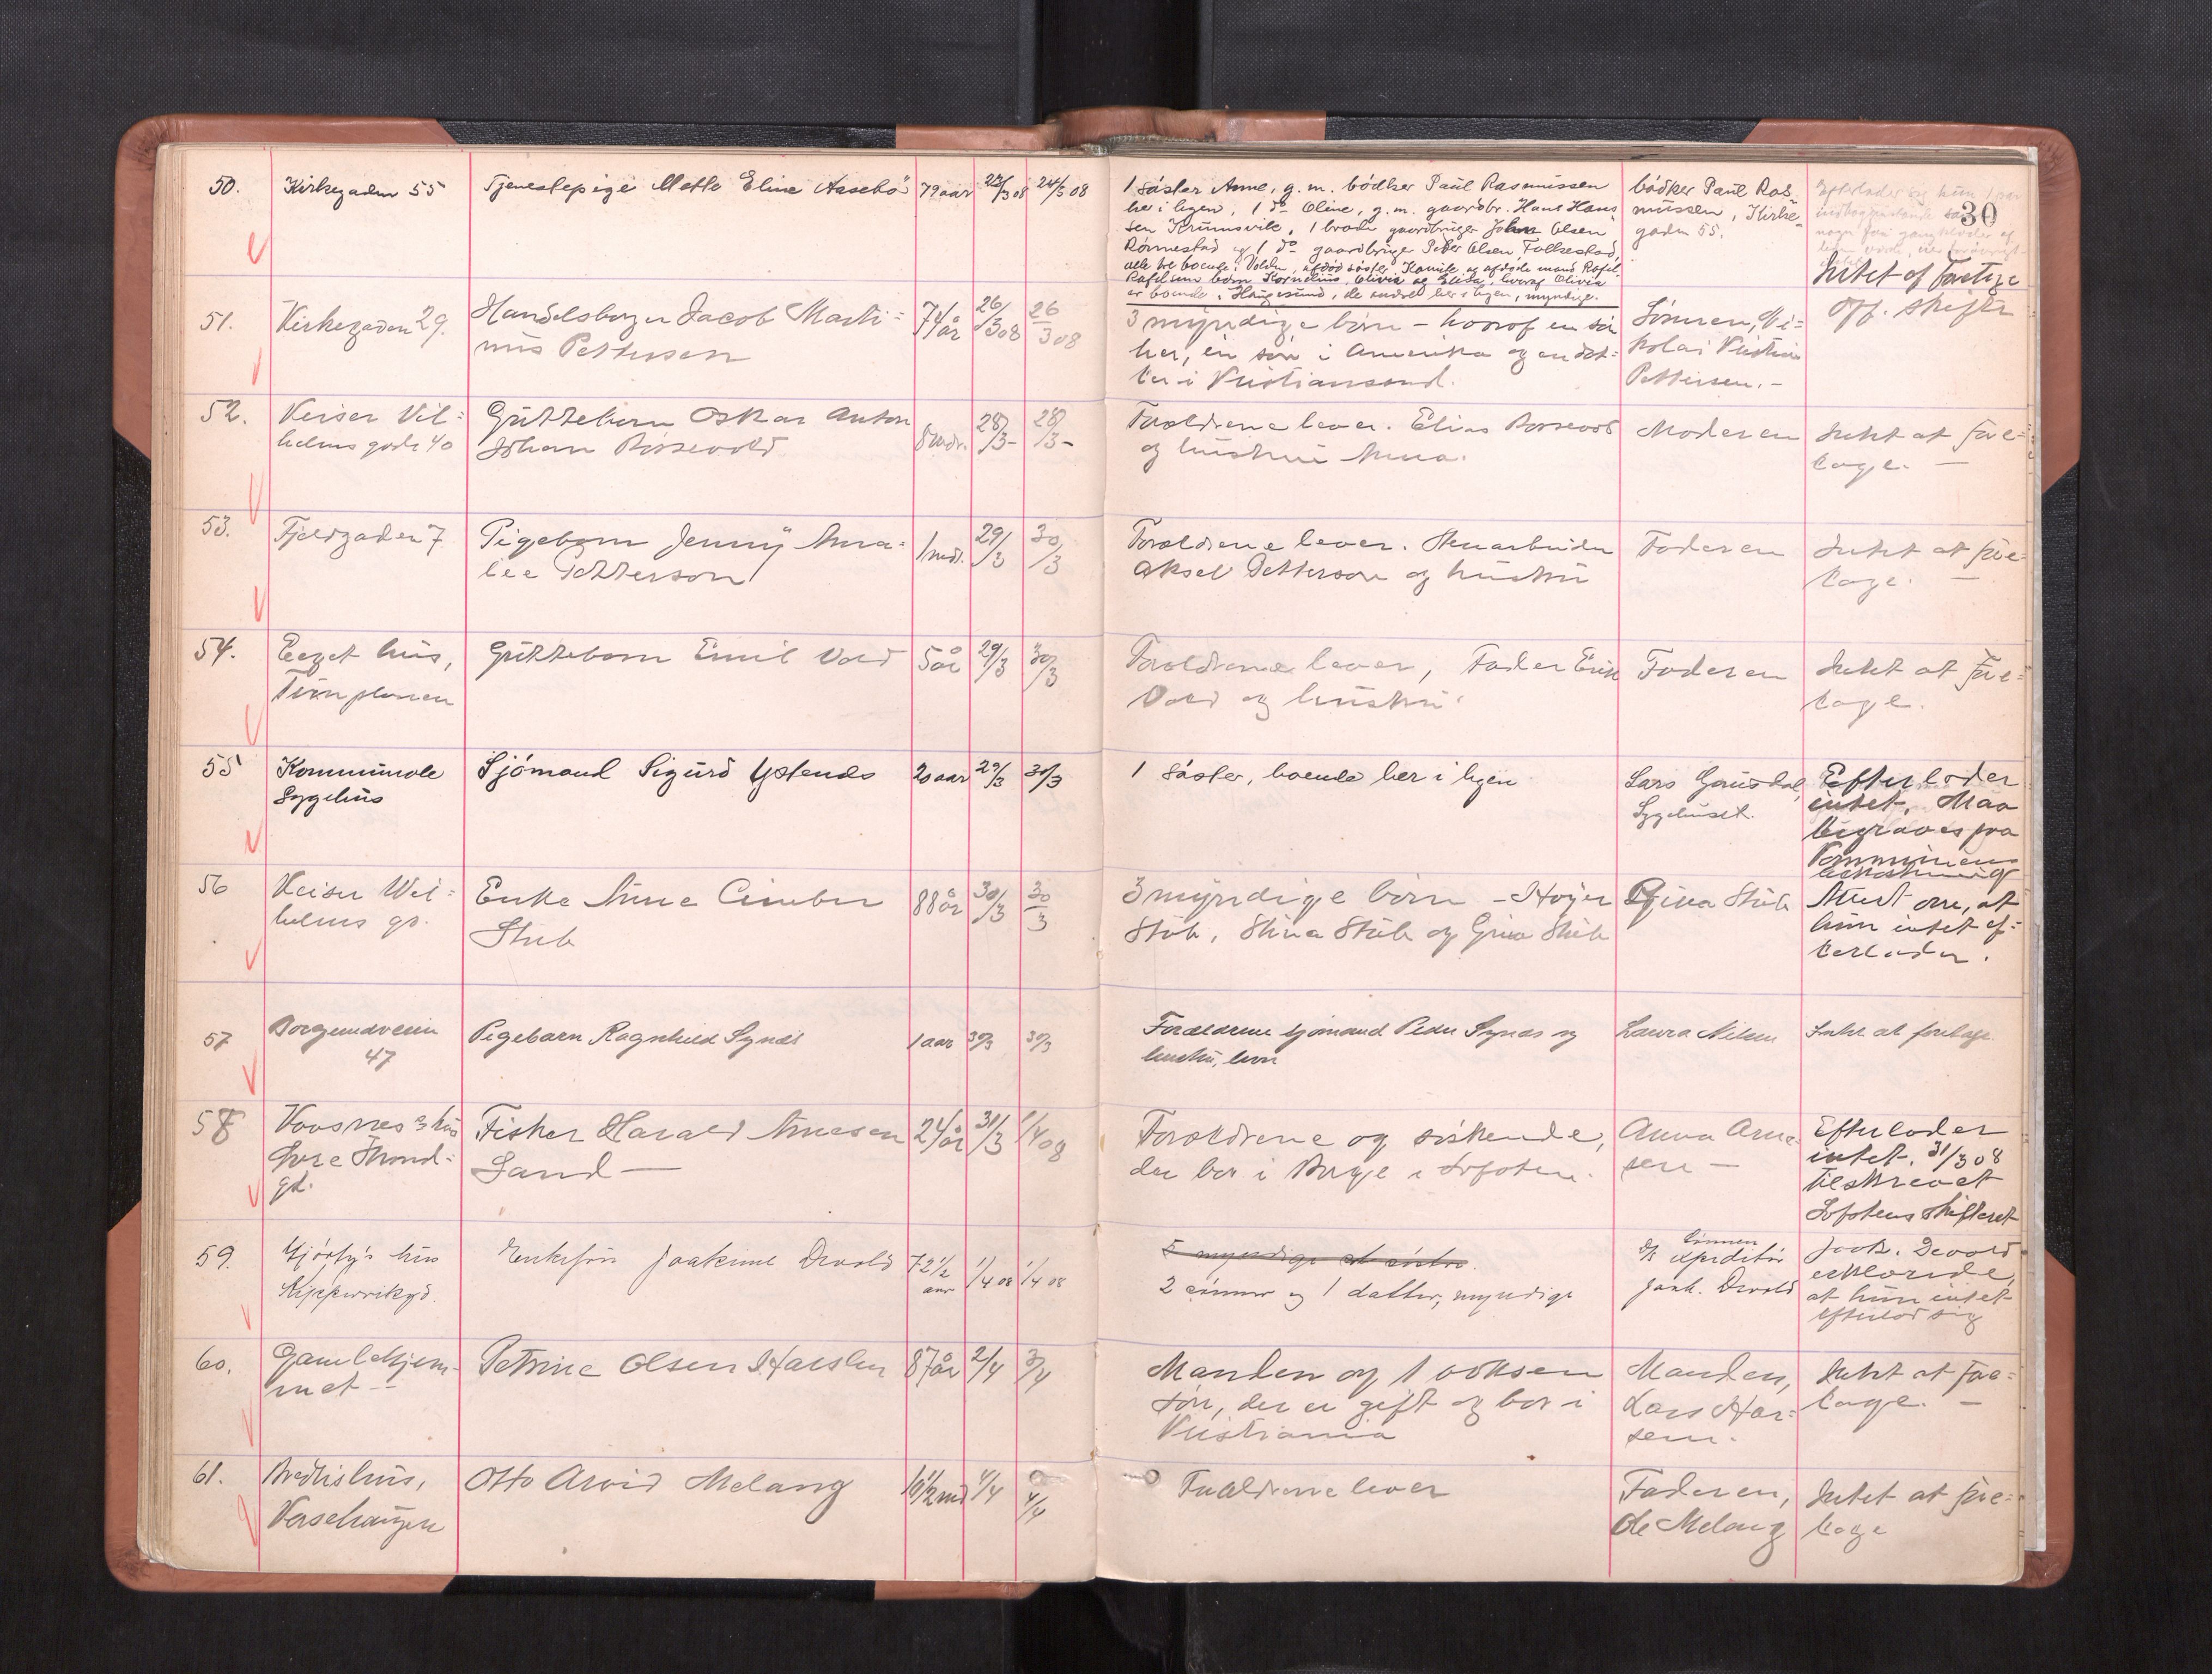 30
50. Kirkegaden 55 Tjenestepige Mette Eline Aasebö 79 aar 23/3 08 24/3 08
1 söster Anne, g. m. bödker Paul Rasmussen
her i byen, 1 do Oline, g. m. gaardbr. Hans Han-
sen Krumsvik, 1 broder gaardbruger Johan Olsen
Rönnestad og 1 do gaardbruger Peder Olsen Folkestad,
alle tre boende i Volden, afdöd söster Kamile og afdöde mand Rafel
Rafelsens börn Kornelius, Olivia og Elida, hvoraf Olivia
er boende i Haugesund, de andre her i byen, myndige.
bödker Paul Ras-
mussen, Kirke-
gaden 55.
Intet at foretage
51. Kirkegaden 29. Handelsborger Jacob Marti-
nus Pettersen
74 år 26/3 08 26/3 08
3 myndige börn – hvoraf en sön
her, en sön i Amerika og en dat-
ter i Kristianssund.
Sönnen, Ni-
kolai Kristian
Pettersen. –
Off. skifte
52. Keiser Vil-
helms gade 40
Guttebarn Oskar Anton
Johan Rossevold
8 mdr. 28/3 – 28/3 –
Forældrene lever. Elias Rossevold
og hustru Anna.
Moderen
Intet at fore-
tage. –
53. Fjeldgaden 7 Pigebarn Jenny Ama-
lie Petterson
1 md. 29/3 30/3
Forældrene lever. Stenarbeider
Aksel Petterson og hustru
Faderen
Intet at fore-
tage. –
54. Eeget hus,
Turnplanen
Guttebarn Emil Vold 5 år 29/3 30/3
Forældrene lever, Fader Erik
Vold og hustru.
Faderen
Intet at fore-
tage.
55 Kommunale
Sygehus
Sjömand Sigurd Ystends 20 aar 29/3 30/3
1 söster, boende her i byen
Lars Gausdal,
Sygehuset.
Efterlader
intet. Maa
begraves paa
Kommunens
bekostning
56 Keiser Wil-
helms gd.
Enke Anne Cimber
Stub
88 år 30/3 30/3
3 myndige börn – Höyer
Stub, Stina Stub og Gina Stub
Gina Stub
Attest om, at
hun intet ef-
terlader.
57 Borgundveien
47
Pigebarn Ragnhild Synes 1 aar 30/3 30/3
Forældrene sjömand Peder Synes og
hustru, lever
Laura Nilsen
Intet at foretage.
58 Vaasnes's hus
övre Strand-
gd.
Fisker Harald Arnesen
Sand –
24 år 31/3 1/4 08
Forældrene og söskende,
der bor i Borge i Lofoten.
Anna Arne-
sen –
Efterlader
intet. 31/3 08
tilskrevet
Lofotens skifteret
59. Gjörtz's hus
Kippervikgd.
Enkefru Joakime Devold 72 1/2
aar
1/4 08 1/4 08
2 sönner og 1 datter, myndige
Sönnen
expeditör
Joak. Devold
Joak. Devold
erklærede,
at hun intet
efterlod sig
60. Gamlehjem-
met –
Petrine Olsen Harslen 87 år 2/4 3/4
Manden og 1 voksen
sön, der er gift og bor i
Kristiania
Manden,
Lars Har-
sem.
Intet at fore-
tage. –
61. Bredlis hus,
Vorschaugen
Otto Arvid Melang 16 1/2 md 4/4 4/4
Forældrene lever
Faderen,
Ole Melang
Intet at fore-
tage